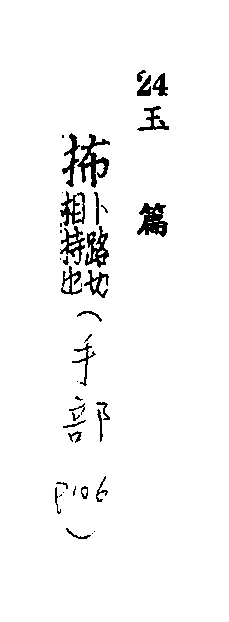 24玉篇
抪卜路切相持也(手部P106)